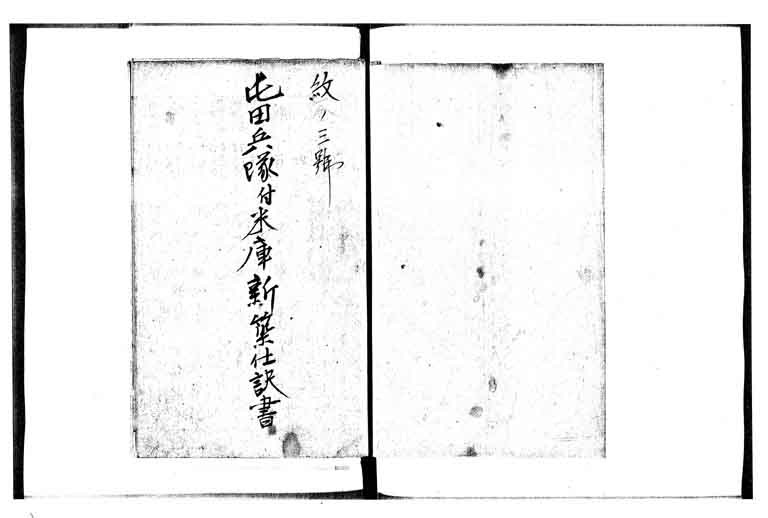 紋ノ三號
屯田兵隊付米庫新築仕訳書